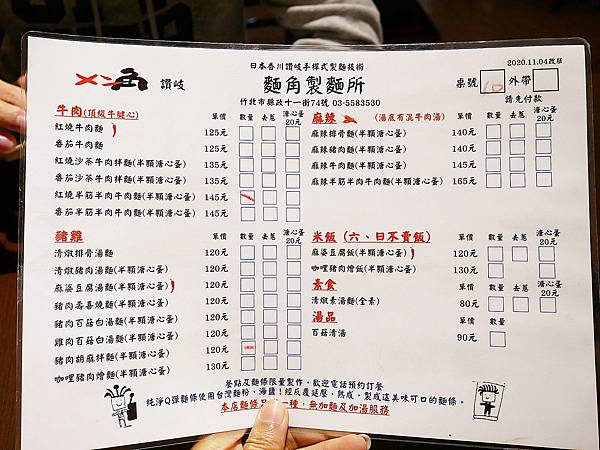 日本香川讚岐手桿式製麵技術
2020.11.04改版
メン角 讚岐
麵角製麵所
桌號 10 外帶
請先付款
竹北市縣政十一街74號 03-5583530
牛肉(頂級牛腱心) 單價 數量 去蔥 溏心蛋20元
紅燒牛肉麵 125元
番茄牛肉麵 125元
紅燒沙茶牛肉拌麵(半顆溏心蛋) 135元
番茄沙茶牛肉拌麵(半顆溏心蛋) 135元
紅燒半筋半肉牛肉麵(半顆溏心蛋) 145元
番茄半筋半肉牛肉麵(半顆溏心蛋) 145元
豬雞 單價 數量 去蔥 溏心蛋20元
清燉排骨湯麵 120元
清燉豬肉湯麵(半顆溏心蛋) 120元
麻婆豆腐湯麵(半顆溏心蛋) 120元
豬肉壽喜燒麵(半顆溏心蛋) 120元
豬肉百菇白湯麵(半顆溏心蛋) 120元
雞肉百菇白湯麵(半顆溏心蛋) 120元
豬肉胡麻拌麵(半顆溏心蛋) 120元
咖哩豬肉燴麵(半顆溏心蛋) 130元
麻辣 (湯底有混牛肉湯) 單價 數量 去蔥 溏心蛋20元
麻辣排骨麵(半顆溏心蛋) 140元
麻辣豬肉麵(半顆溏心蛋) 140元
麻辣牛肉麵(半顆溏心蛋) 145元
麻辣半筋半肉牛肉麵(半顆溏心蛋) 165元
米飯(六、日不賣飯) 單價 數量 去蔥 溏心蛋20元
麻婆豆腐飯(半顆溏心蛋) 120元
咖哩豬肉燴飯(半顆溏心蛋) 130元
素食 單價 數量 去蔥 溏心蛋20元
清燉素湯麵(全素) 80元
湯品 單價 數量
百菇清湯 90元
餐點及麵條限量製作,歡迎電話預約訂餐
純淨Q彈麵條使用台灣麵粉、海鹽!經反覆延壓、熟成,製成這美味可口的麵條。
本店麵條只 一種,無加麵及加湯服務